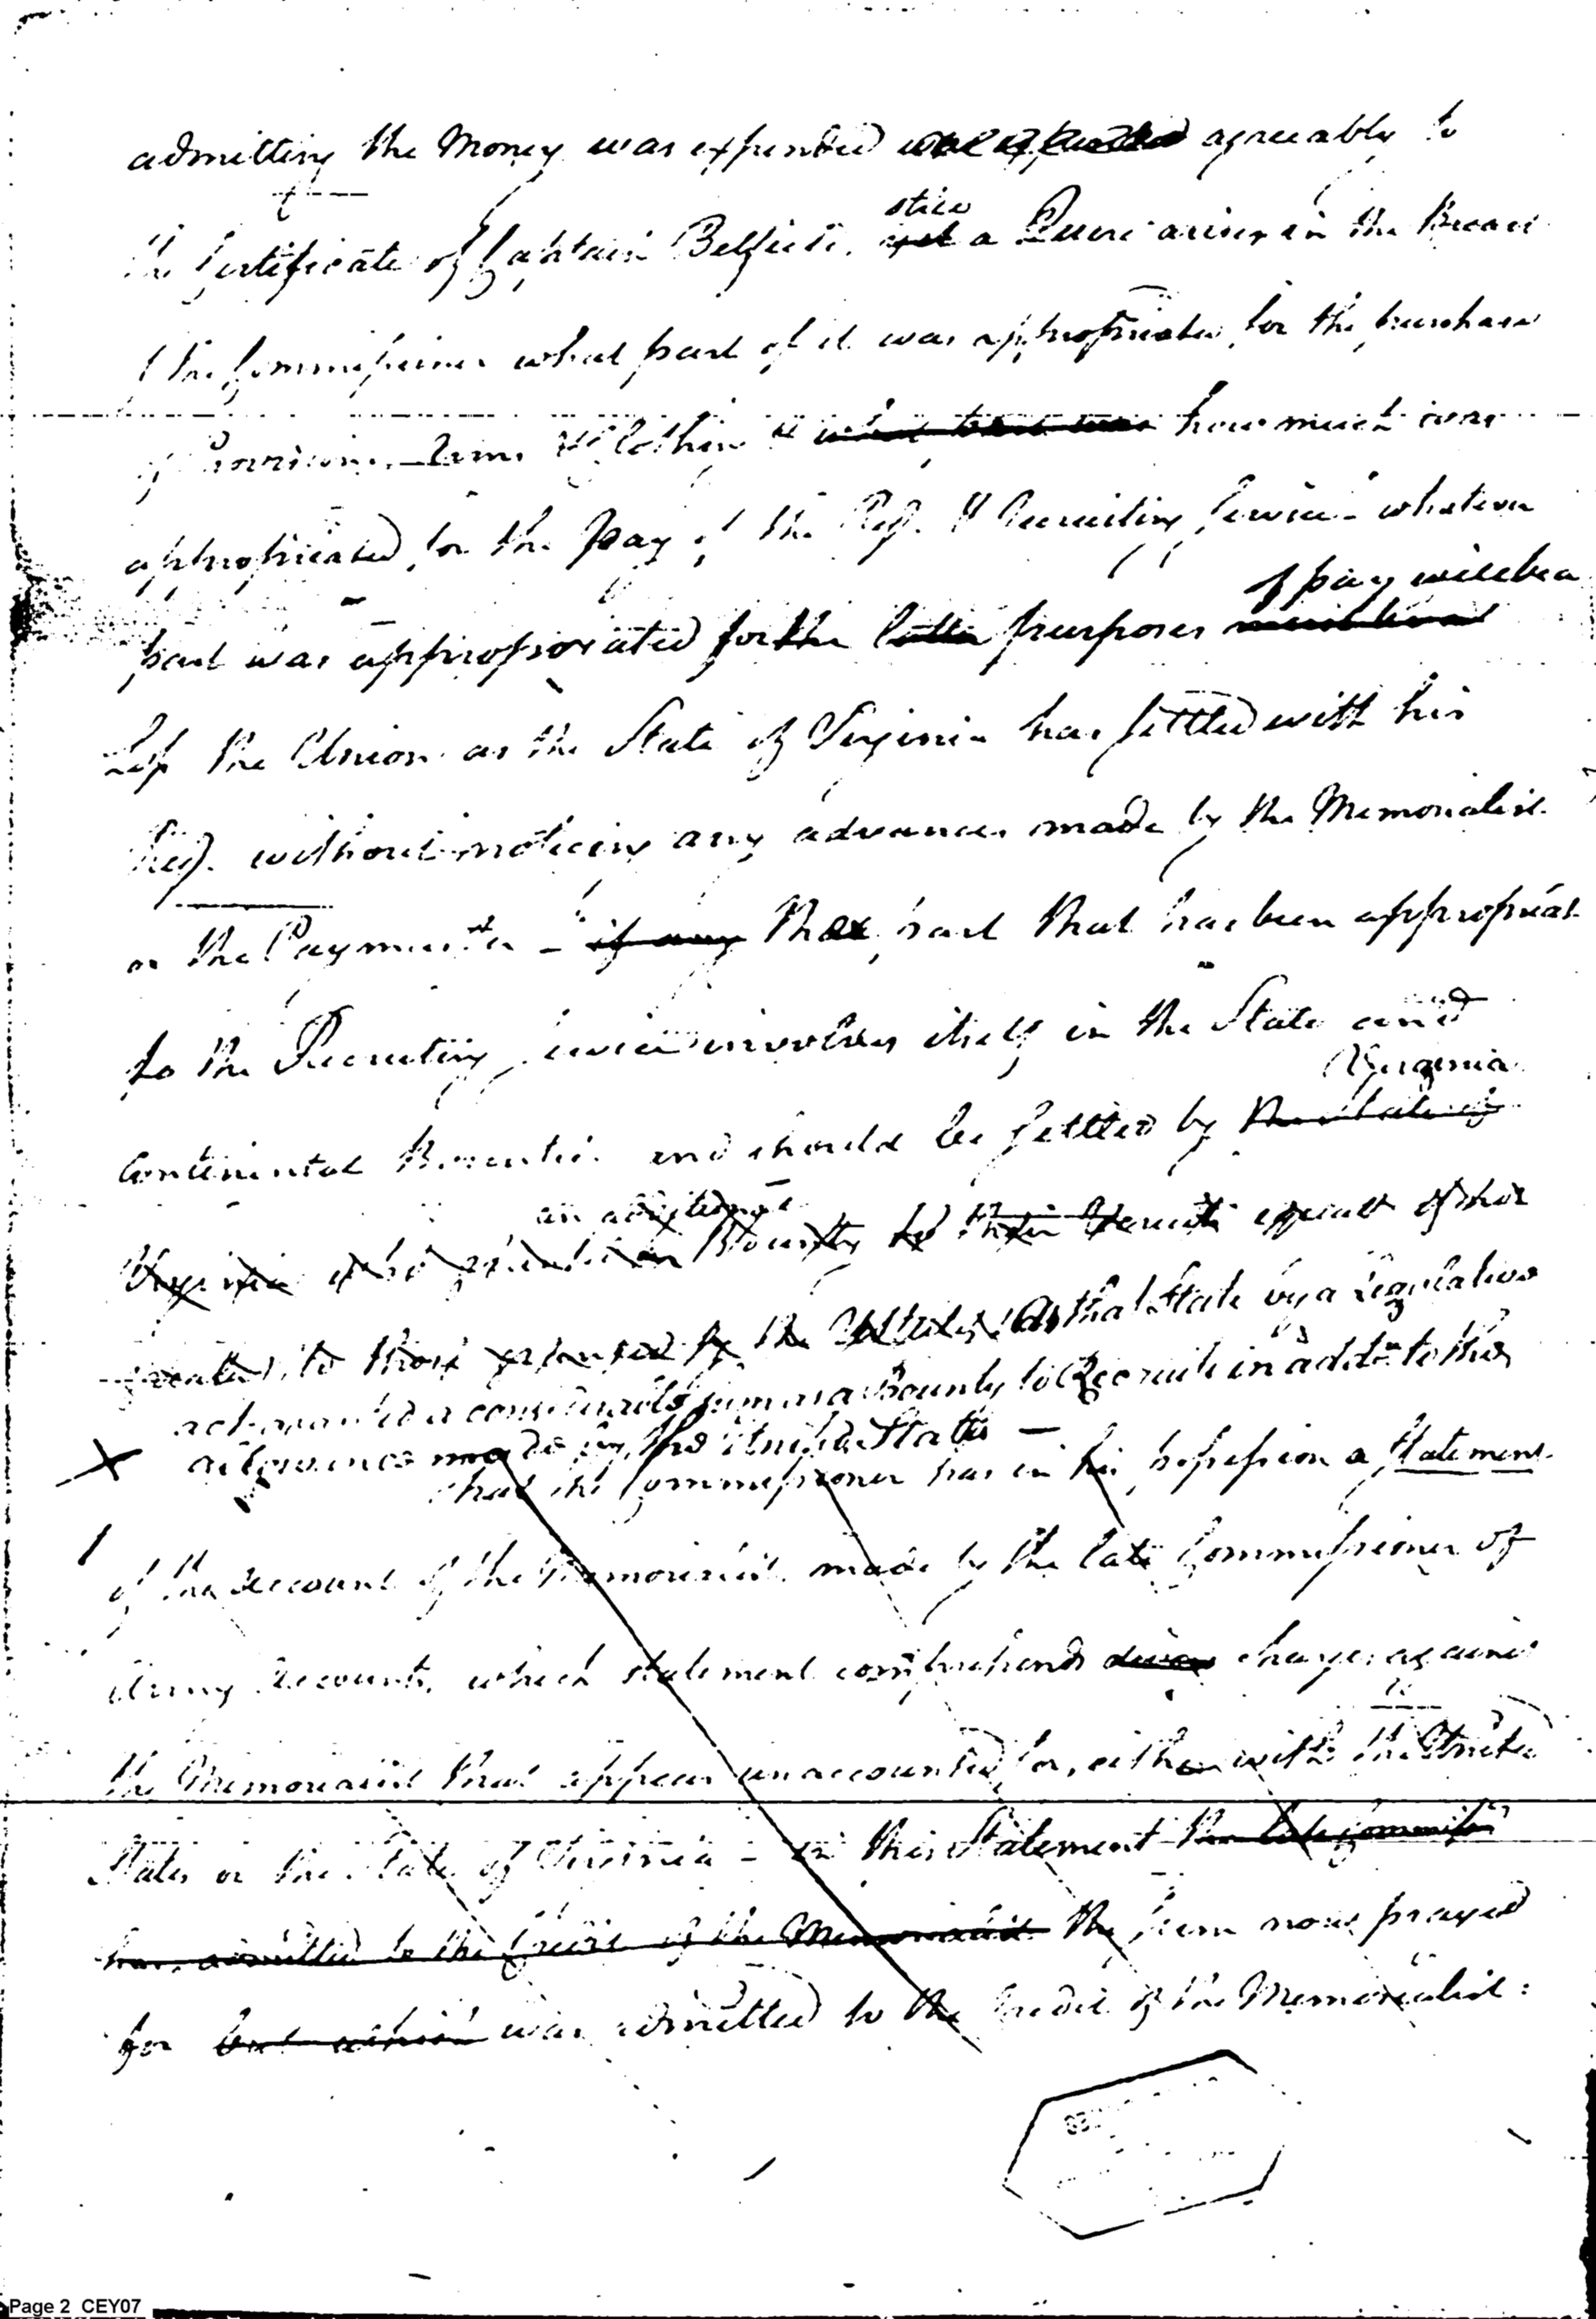 admitting the Money was expended agreeably to
the Certificate of Captain Belfield.
still
yet a Quere arises in the Breast
of the Commissioner what part of it was appropriated for the purchase
of Provisions Arms & Clothing & what part was how much was
appropriated for the pay of the Regt. & Recruiting Service whatever
of pay will be a
part was appropriated for the latter purposes must be a
Loss the Union as the State of Virginia has settled with his
Regt. without noticing any advances made by the Memorialist
or the Paymaster - if any that part that has been appropriat
to the Recruiting Service involves itself in the State and
Virginia
Continental Bounties and should be settled by the State of
an additional
Virginia who Bounty to their Recruits
granted to those granted by the As that State by a Legislative
act granted a considerable sum as a Bounty to Recruits in addtn to the
allowance made by the United States —
that the Commissioner has in his possession a Statement
of the account of the Memorialist made by the late Commissioner of
Army Accounts, which statement comprehends charges against
the Memorialist that appear unaccounted for, either with the United
States or the State of Virginia - in this Statement the late Commissr
has admitted to the Credit of the Memorialist the sum now prayed
for but which was admitted to the Credit of the Memorialist:
Page 2 CEY07